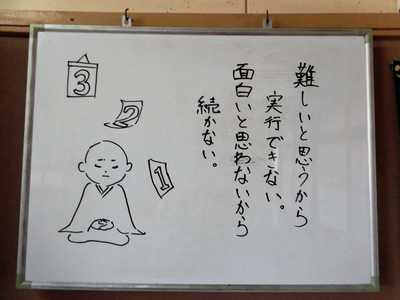 難しいと思うから
実行できない。
面白いと思わないから
続かない。
3
2
1